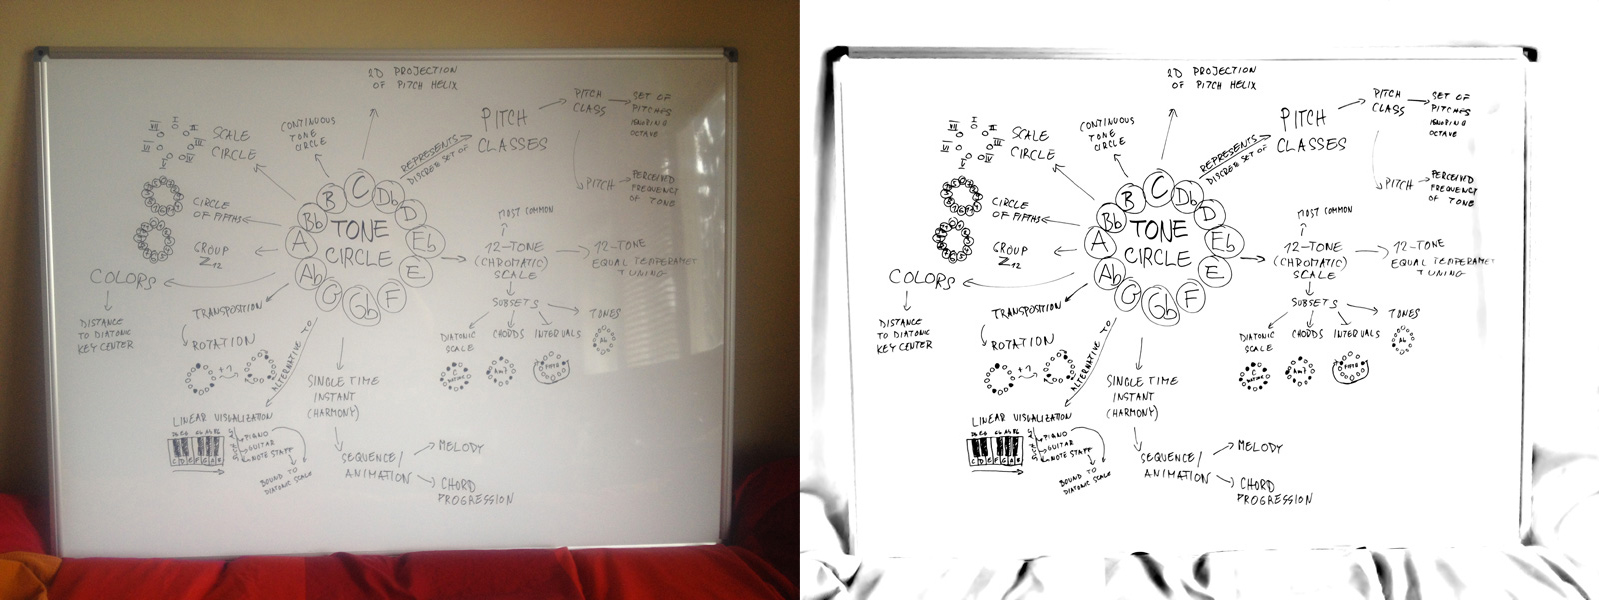 2D PROJECTION
OF PITCH HELIX
PITCH
CLASS
SET OF
PITCHES
IGNORING
OCTAVE
PITCH
CLASSES
REPRESENTS
DISCREE SET OF
CONTINUOUS
TONE
CIRCLE
SCALE
CIRCLE
I
II
III
IV
V
VI
VII
PITCH
PERCEIVED
FREQUENCY
OF TONE
CIRCLE
OF FIFTHS
GROUP
Z12
COLORS
DISTANCE
TO DIATONIC
KEY CENTER
TONE
CIRCLE
C
Db
D
Eb
E
F
Gb
G
Ab
A
Bb
B
MOST COMMON
12-TONE
(CHROMATIC)
SCALE
12-TONE
EQUAL TEMPERAMET
TUNING
SUBSETS
DIATONIC
SCALE
CHORDS
INTERVALS
TONES
Ab
Am7
TRANSPOSITION
ROTATION
+7
ALTERNATIVE TO
LINEAR VISUALIZATION
C D E F G A B
PIANO
GUITAR
NOTE STAFF
BOUND TO
DIATONIC SCALE
SINGLE TIME
INSTANT
(HARMONY)
SEQUENCE/
ANIMATION
MELODY
CHORD
PROGRESSION
2D PROJECTION
OF PITCH HELIX
PITCH
CLASS
SET OF
PITCHES
IGNORING
OCTAVE
PITCH
CLASSES
REPRESENTS
DISCREE SET OF
CONTINUOUS
TONE
CIRCLE
SCALE
CIRCLE
I
II
III
IV
V
VI
VII
PITCH
PERCEIVED
FREQUENCY
OF TONE
CIRCLE
OF FIFTHS
GROUP
Z12
COLORS
DISTANCE
TO DIATONIC
KEY CENTER
TONE
CIRCLE
C
Db
D
Eb
E
F
Gb
G
Ab
A
Bb
B
MOST COMMON
12-TONE
(CHROMATIC)
SCALE
12-TONE
EQUAL TEMPERAMET
TUNING
SUBSETS
DIATONIC
SCALE
CHORDS
INTERVALS
TONES
Ab
Am7
TRANSPOSITION
ROTATION
+7
ALTERNATIVE TO
LINEAR VISUALIZATION
C D E F G A B
PIANO
GUITAR
NOTE STAFF
BOUND TO
DIATONIC SCALE
SINGLE TIME
INSTANT
(HARMONY)
SEQUENCE/
ANIMATION
MELODY
CHORD
PROGRESSION